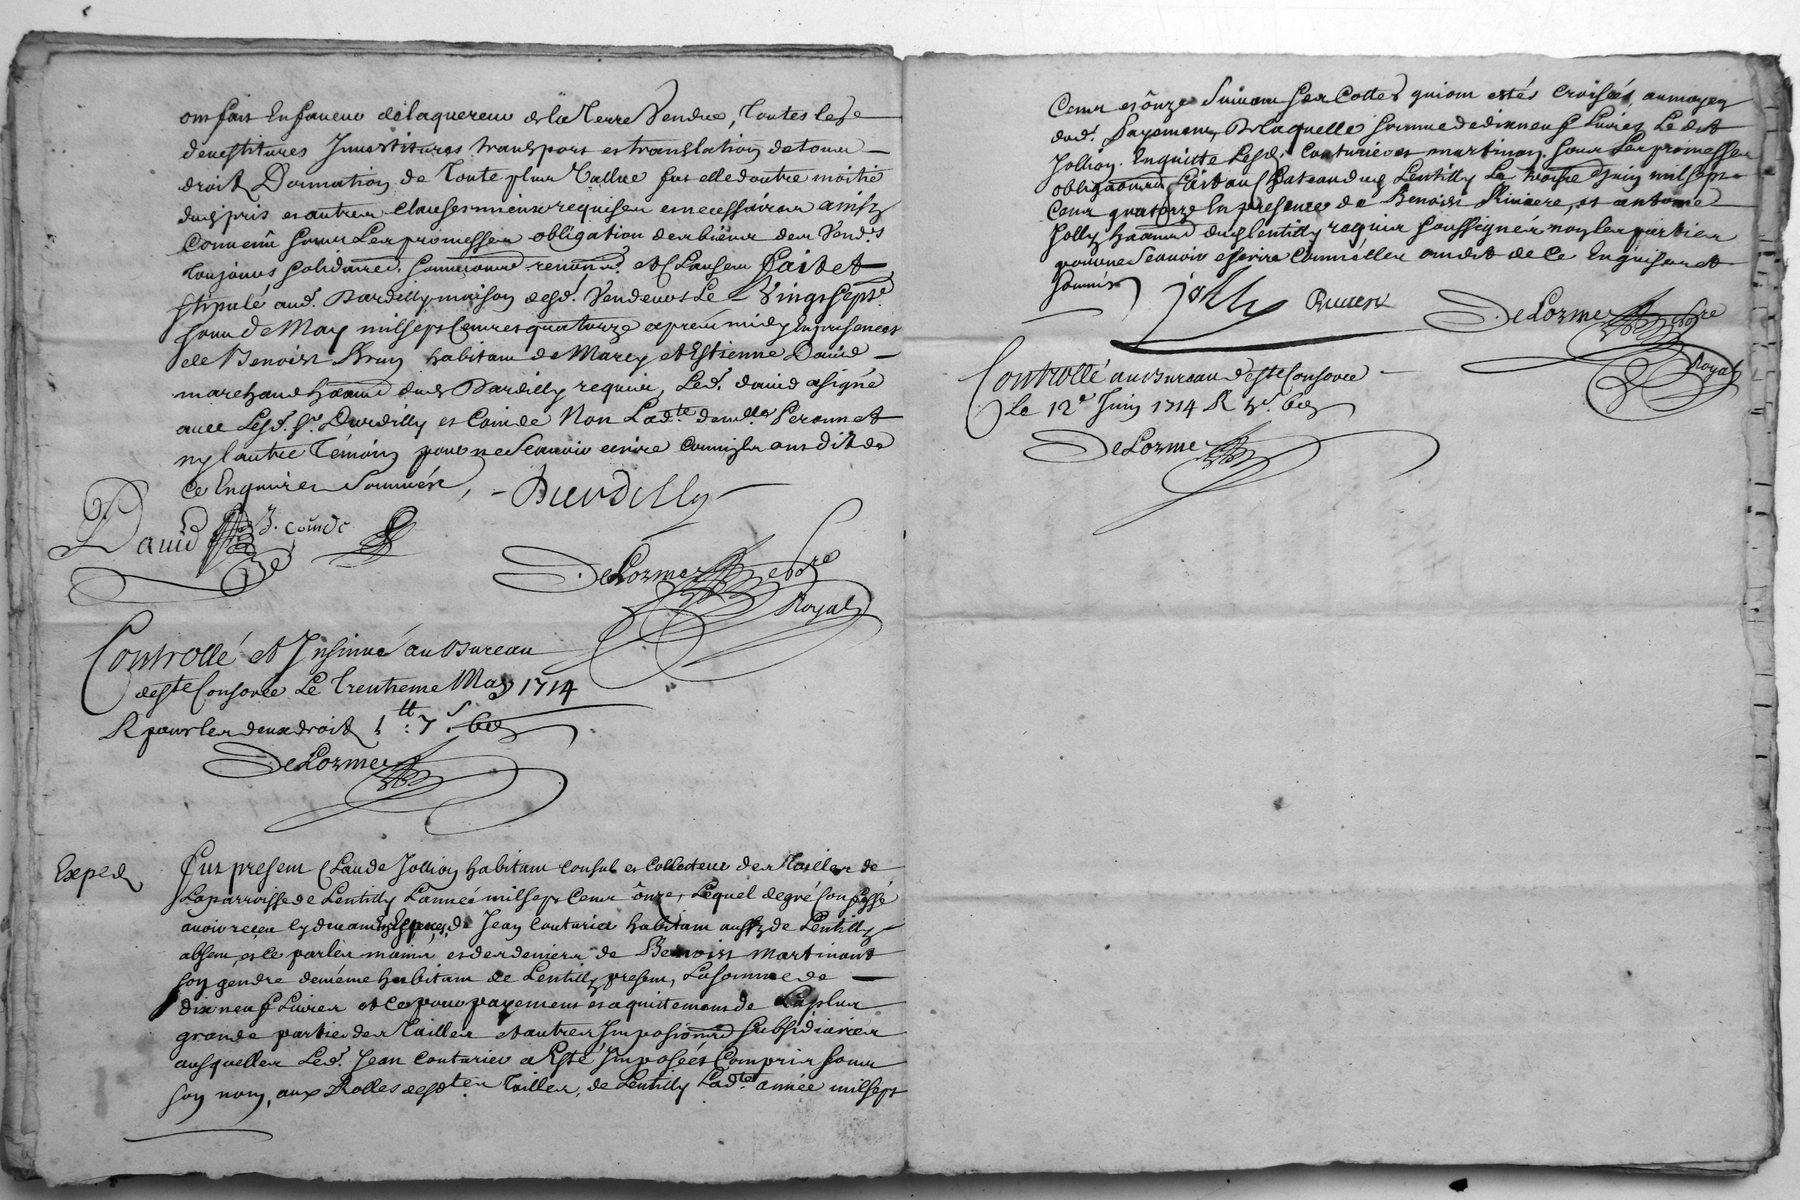 ont fait En faveur de laquereur de la Terre Vendue, Toutes les
devestitures Jnvestitures transport et translation de tous
droit Donnation de Toute plus Vallue fut elle doutre moitié
dud. pris et autres clauses mieux requises et necessaires ainsy
Convenû sous Les promesses obligation des biens des Vend.rs
toujours solidaires, soumissions renon.on et Clauses fait et
stipulé aud. Dardilly maison desd. Vendeurs Le Vingt sept.e
Jour de May mil sept Cent et quatorze apres midy En presences
de Benoist Brun habitant de Marcy et Estienne David
marchand dud. Dardilly requis, Led. david a signé
avec Lesd. s.r Durdilly et Coinde Non Lad.te dem.lle Peronnet
ny l'autre Témoin pour ne scavoir escrire comme ils ont dit de
Ce Enquis et Sommés,
Durdilly
David B. coinde
DeLorme no.re
Royal
Controllé et Jnsinué au Bureau
de s.te Consorce Le trentieme May 1714
R pour les deux droit 1tt: 7s. 6d
DeLorme
Exped
Fut present Claude Jollion habitant consul et Collecteur des Tailles de
La parroisse de Lentilly L'année mil sept Cent ônze, Lequel de gré Confesse
avoir receu cy devant En Especes, de Jean Couturier habitant aussy de Lentilly
absent, et le par les mains et des deniers de Benoist Martinant
son gendre de même habitant de Lentilly present, La somme de
dix neuf Livres et Ce pour payement et aquittement de La plus
grande partie des Tailles et autres Jmpositions subsidiaires
ausquelles Led. Jean Couturier a Esté Jmposé et Compris sous
son nom, aux Rolles desd.tes Tailles, de Lentilly Lad.te année mil sept
Cent et ônze Suivant Ses Cottes qui ont estés croisées, au moyen
dud. Payement, De laquelle somme de dix neuf Livres Le dit
Jollion En quitte Lesd. Couturier et martinant sous Les promesses
obligations Fait au Chateau dud. Lentilly Le Juin mil sept
Cent quatorze En presence de Benoist Riviere, et antoine
Jolly dud. Lentilly requis soussignés non les parties
pour ne Scavoir escrire Comme elles ont dit de Ce Enquises et
Sommés
jolly Riviere DeLorme no.re
Royal
Controllé au Bureau de s.te Consorce
Le 12e Juin 1714 R 6d
DeLorme